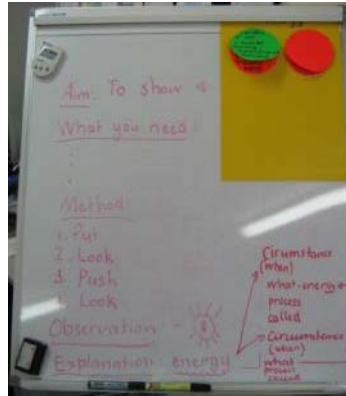 Aim: To show
What you need:
Method
1. Put
2. Look
3. Push
4. Look
Observation -
Explanation: energy
Circumstance
(when)
what-energy
process
called
Circumstance
(when)
what
process
called